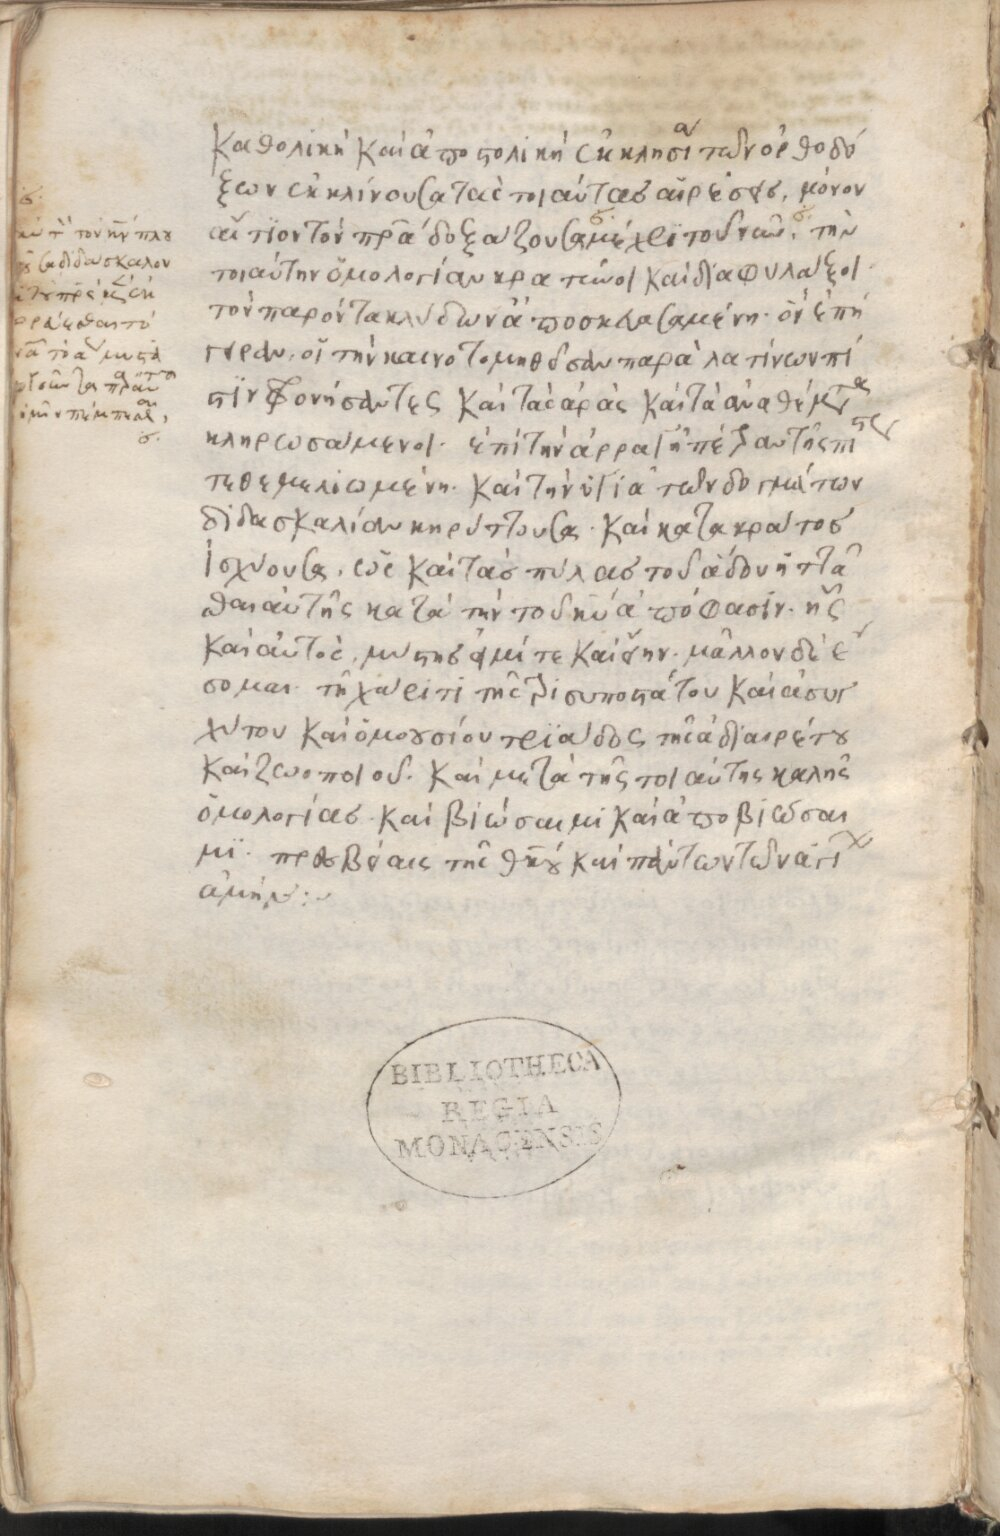 καθολικὴ καὶ ἀποστολικὴ ἐκκλησία τῶν ὀρθοδό
ξων ἐκκλίνουσα τὰς τοιαύτας αἱρέσεις, μόνον
αἴτιον τὸν πρα δοξάζουσα μέχρι τοῦ νῦν, τὴν
τοιαύτην ὁμολογίαν κρατύνοι καὶ διαφυλάξοι
τὸν παρόντα κλύδωνα ἀποσκευασαμένη. ὃν ἐπή
γειραν, οἱ τὴν καινοτομηθεῖσαν παρὰ λατίνων πί
στιν φρονήσαντες καὶ τὰς ἀρὰς καὶ τὰ ἀναθέματα
κληρωσάμενοι. ἐπὶ τὴν ἀρραγῆ πέτραν τῆς πίστεως
τεθεμελιωμένη. καὶ τὴν ὑγιᾶ τῶν δογμάτων
διδασκαλίαν κηρύττουσα. καὶ κατακράτος
ἰσχύουσα, ὡς καὶ τὰς πύλας τοῦ ἅδου ἡττᾶ
σθαι αὐτῆς κατὰ τὴν τοῦ κυ ἀπόφασιν. ἧς
καὶ αὐτὸς, μύστης εἰμί τε καὶ ἤμην. μᾶλλον δὲ ἔ
σομαι. τῇ χάριτι τῆς τρισυποστάτου καὶ ἀσυγ
χύτου καὶ ὁμοουσίου τριάδος τῆς ἀδιαιρέτου
καὶ ζωοποιοῦ. καὶ μετὰ τῆς τοιαύτης καλῆς
ὁμολογίας καὶ βιώσαιμι καὶ ἀποβιώσαι
μι. πρεσβείαις τῆς θκου καὶ πάντων τῶν ἁγίων
ἀμήν:
διδάσκαλον
BIBLIOTHECA
REGIA
MONACENSIS